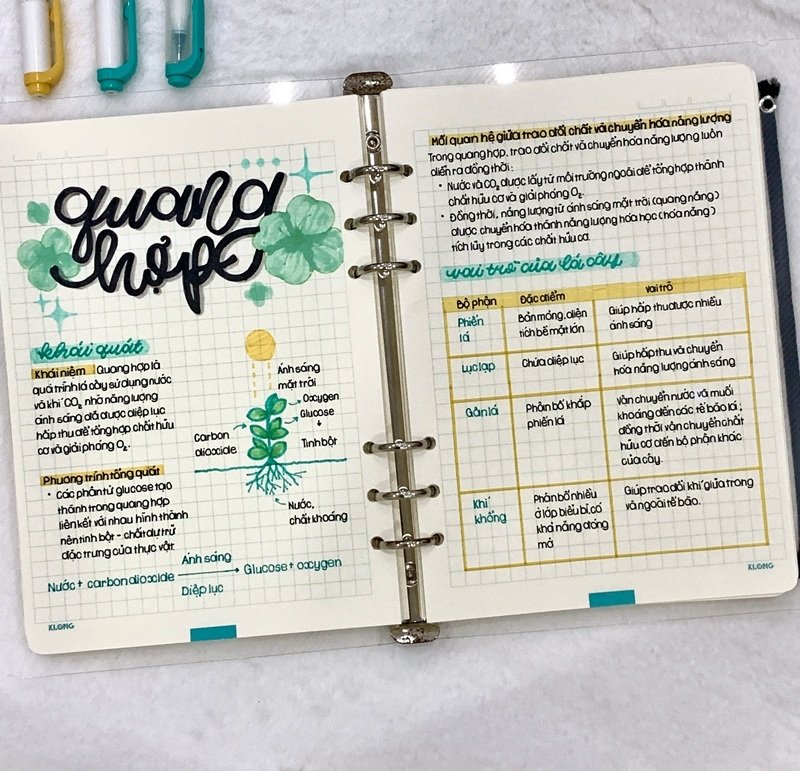 quang
hợp
khái quát
Khái niệm Quang hợp là
quá trình lá cây sử dụng nước
và khí CO₂ nhờ năng lượng
ánh sáng đã được diệp lục
hấp thu để tổng hợp chất hữu
cơ và giải phóng O₂.
Phương trình tổng quát
• Các phân tử glucose tạo
thành trong quang hợp
liên kết với nhau hình thành
nên tinh bột - chất dự trữ
đặc trưng của thực vật.
Ánh sáng
mặt trời
Oxygen
Glucose
Tinh bột
Carbon
dioxide
Nước,
chất khoáng
Nước + carbon dioxide Ánh sáng → Glucose + oxygen
Diệp lục
KLONG
Mối quan hệ giữa trao đổi chất và chuyển hóa năng lượng
Trong quang hợp, trao đổi chất và chuyển hóa năng lượng luôn
diễn ra đồng thời:
• Nước và CO₂ được lấy từ môi trường ngoài để tổng hợp thành
chất hữu cơ và giải phóng O₂.
• Đồng thời, năng lượng từ ánh sáng mặt trời (quang năng)
được chuyển hóa thành năng lượng hóa học (hóa năng)
tích lũy trong các chất hữu cơ.
vai trò của lá cây
Bộ phận Đặc điểm Vai trò
Phiến Bản mỏng, diện Giúp hấp thu được nhiều
lá tích bề mặt lớn ánh sáng
Lục lạp Chứa diệp lục Giúp hấp thu và chuyển
hóa năng lượng ánh sáng
Gân lá Phân bố khắp Vận chuyển nước và muối
phiến lá khoáng đến các tế bào lá;
đồng thời vận chuyển chất
hữu cơ đến bộ phận khác
của cây.
Khí Phân bố nhiều Giúp trao đổi khí giữa trong
khổng ở lớp biểu bì, có và ngoài tế bào.
khả năng đóng
mở
KLONG